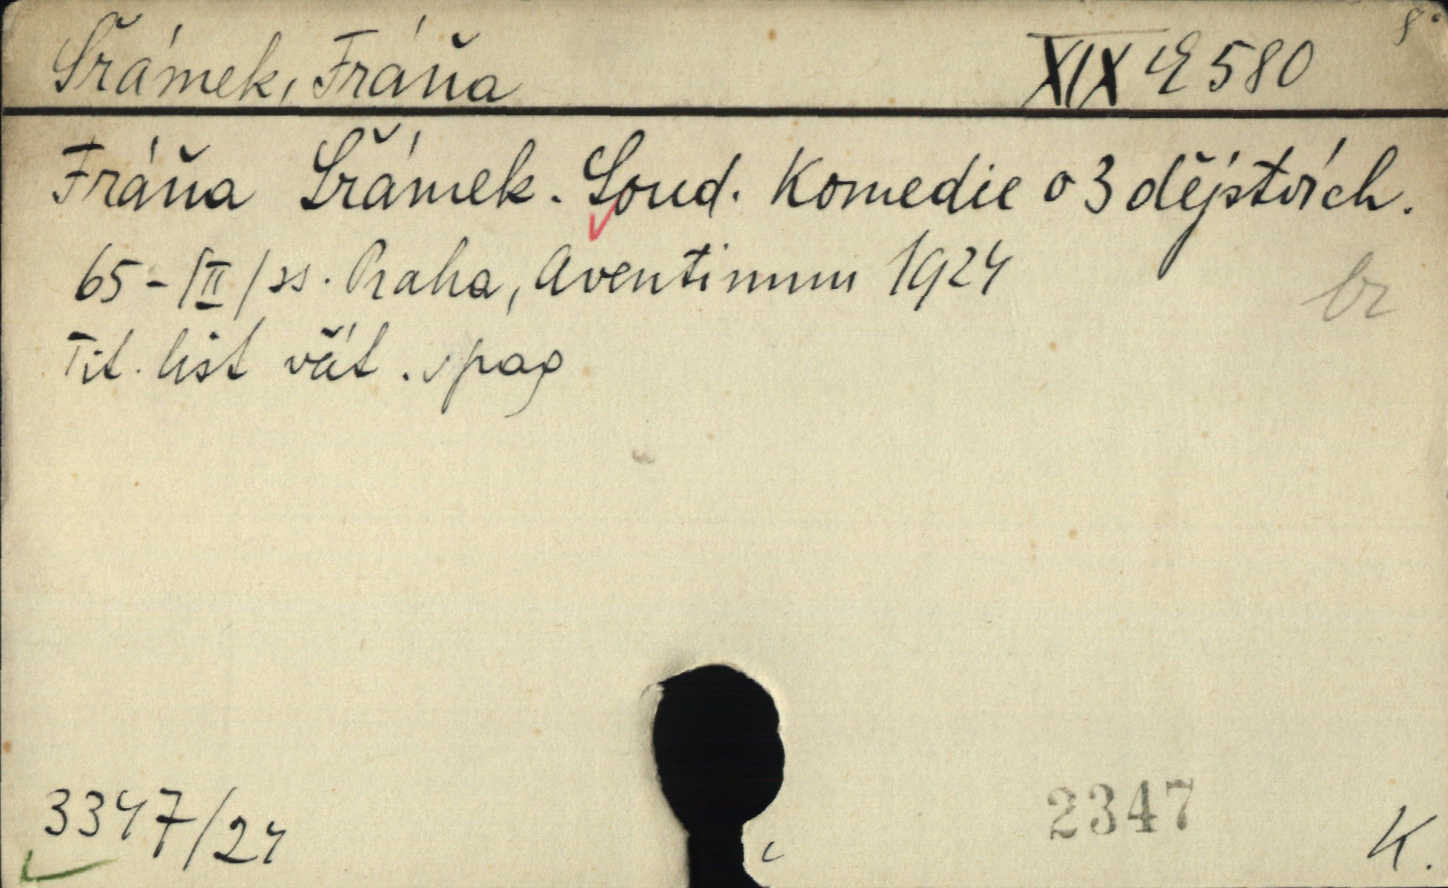 8°
Šrámek, Fráňa XIX E 580
Fráňa Šrámek. Soud. Komedie o 3 dějstvích.
65-/II/ ss. Praha, Aventinum 1924
br
Tit. list včít. v pag
3347/24
2347
K.